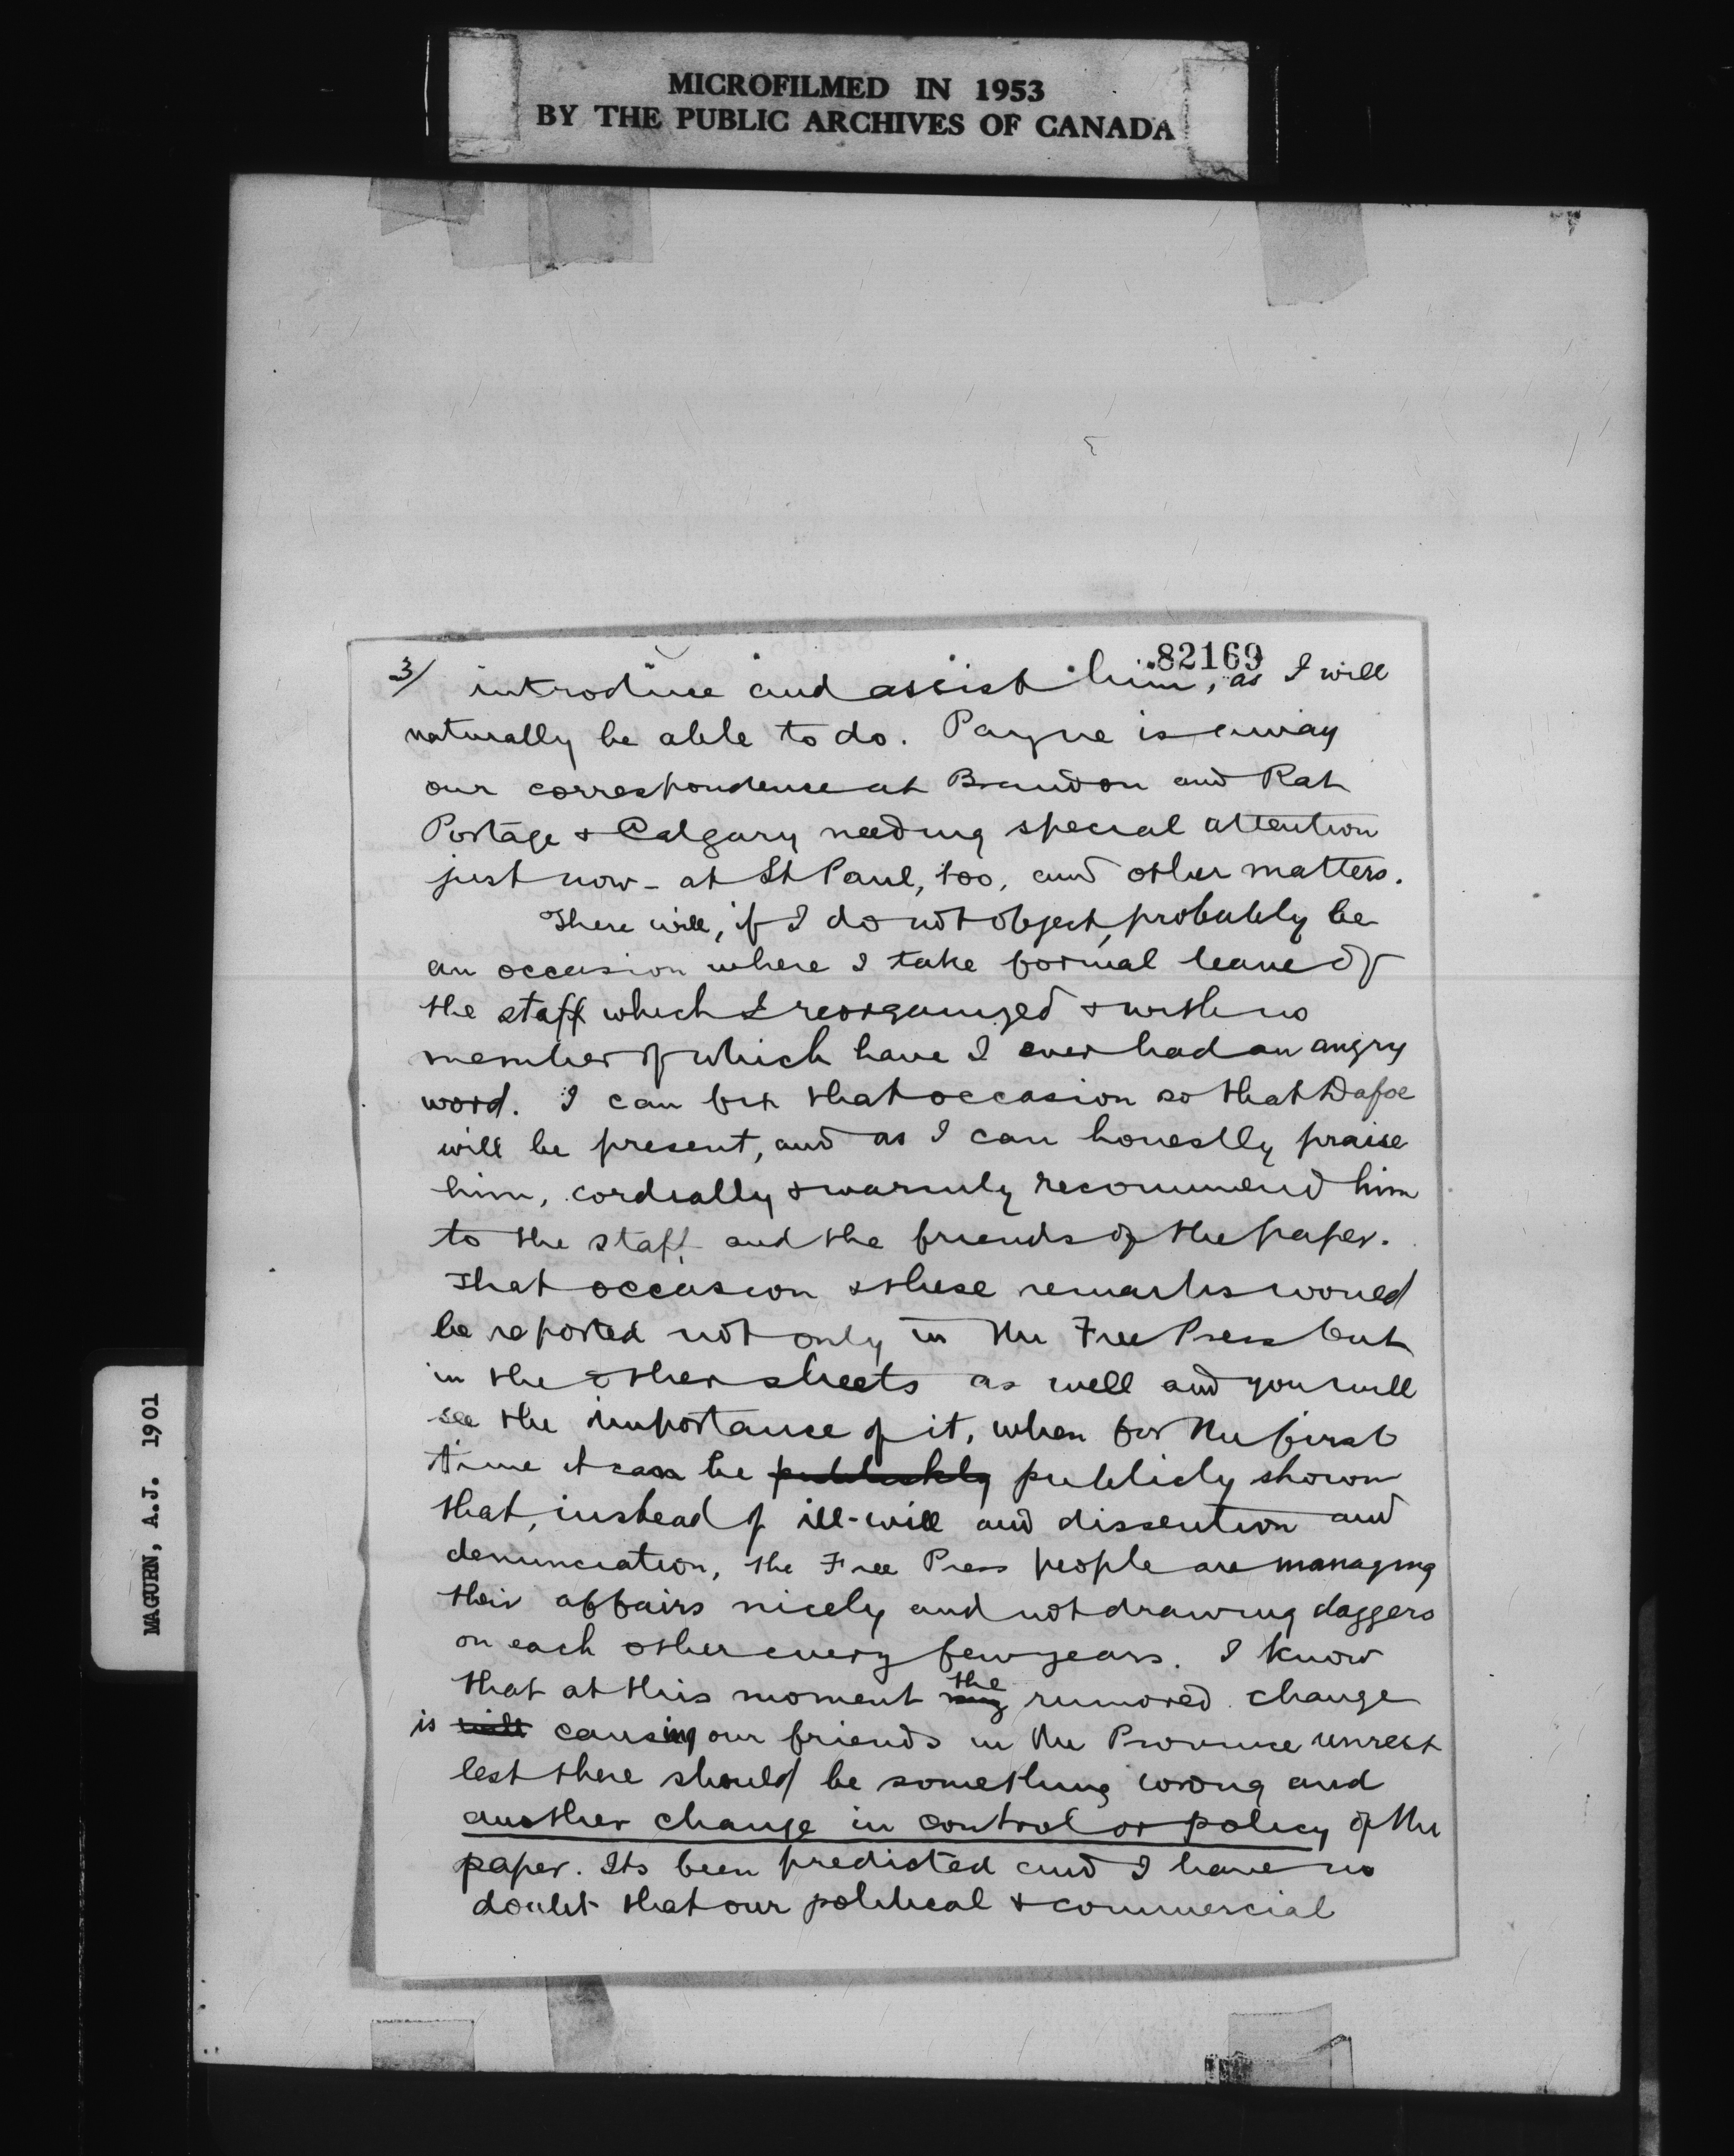 MICROFILMED IN 1953
BY THE PUBLIC ARCHIVES OF CANADA
82169
3/ introduce and assist him, as I will
naturally be able to do. Payne is away
our correspondence at Brandon and Rat
Portage & Calgary needing special attention
just now - at St Paul, too, and other matters.
There will, if I do not object, probably be
an occasion where I take formal leave of
the staff which I reorganized & with no
member of which have I ever had an angry
word. I can fix that occasion so that Dafoe
will be present, and as I can honestly praise
him, cordially & warmly recommend him
to the staff and the friends of the paper.
That occasion & these remarks would
be reported not only in the Free Press but
in the other sheets as well and you will
see the importance of it, when for the first
time it can be publickly publicly shown
that, instead of ill-will and dissention and
denunciation, the Free Press people are managing
their affairs nicely and not drawing daggers
on each other every few years. I know
that at this moment the rumored change
is causing our friends in the Province unrest
lest there should be something wrong and
another change in control or policy of the
paper. Its been predicted and I have no
doubt that our political & commercial
MAGURN, A.J. 1901